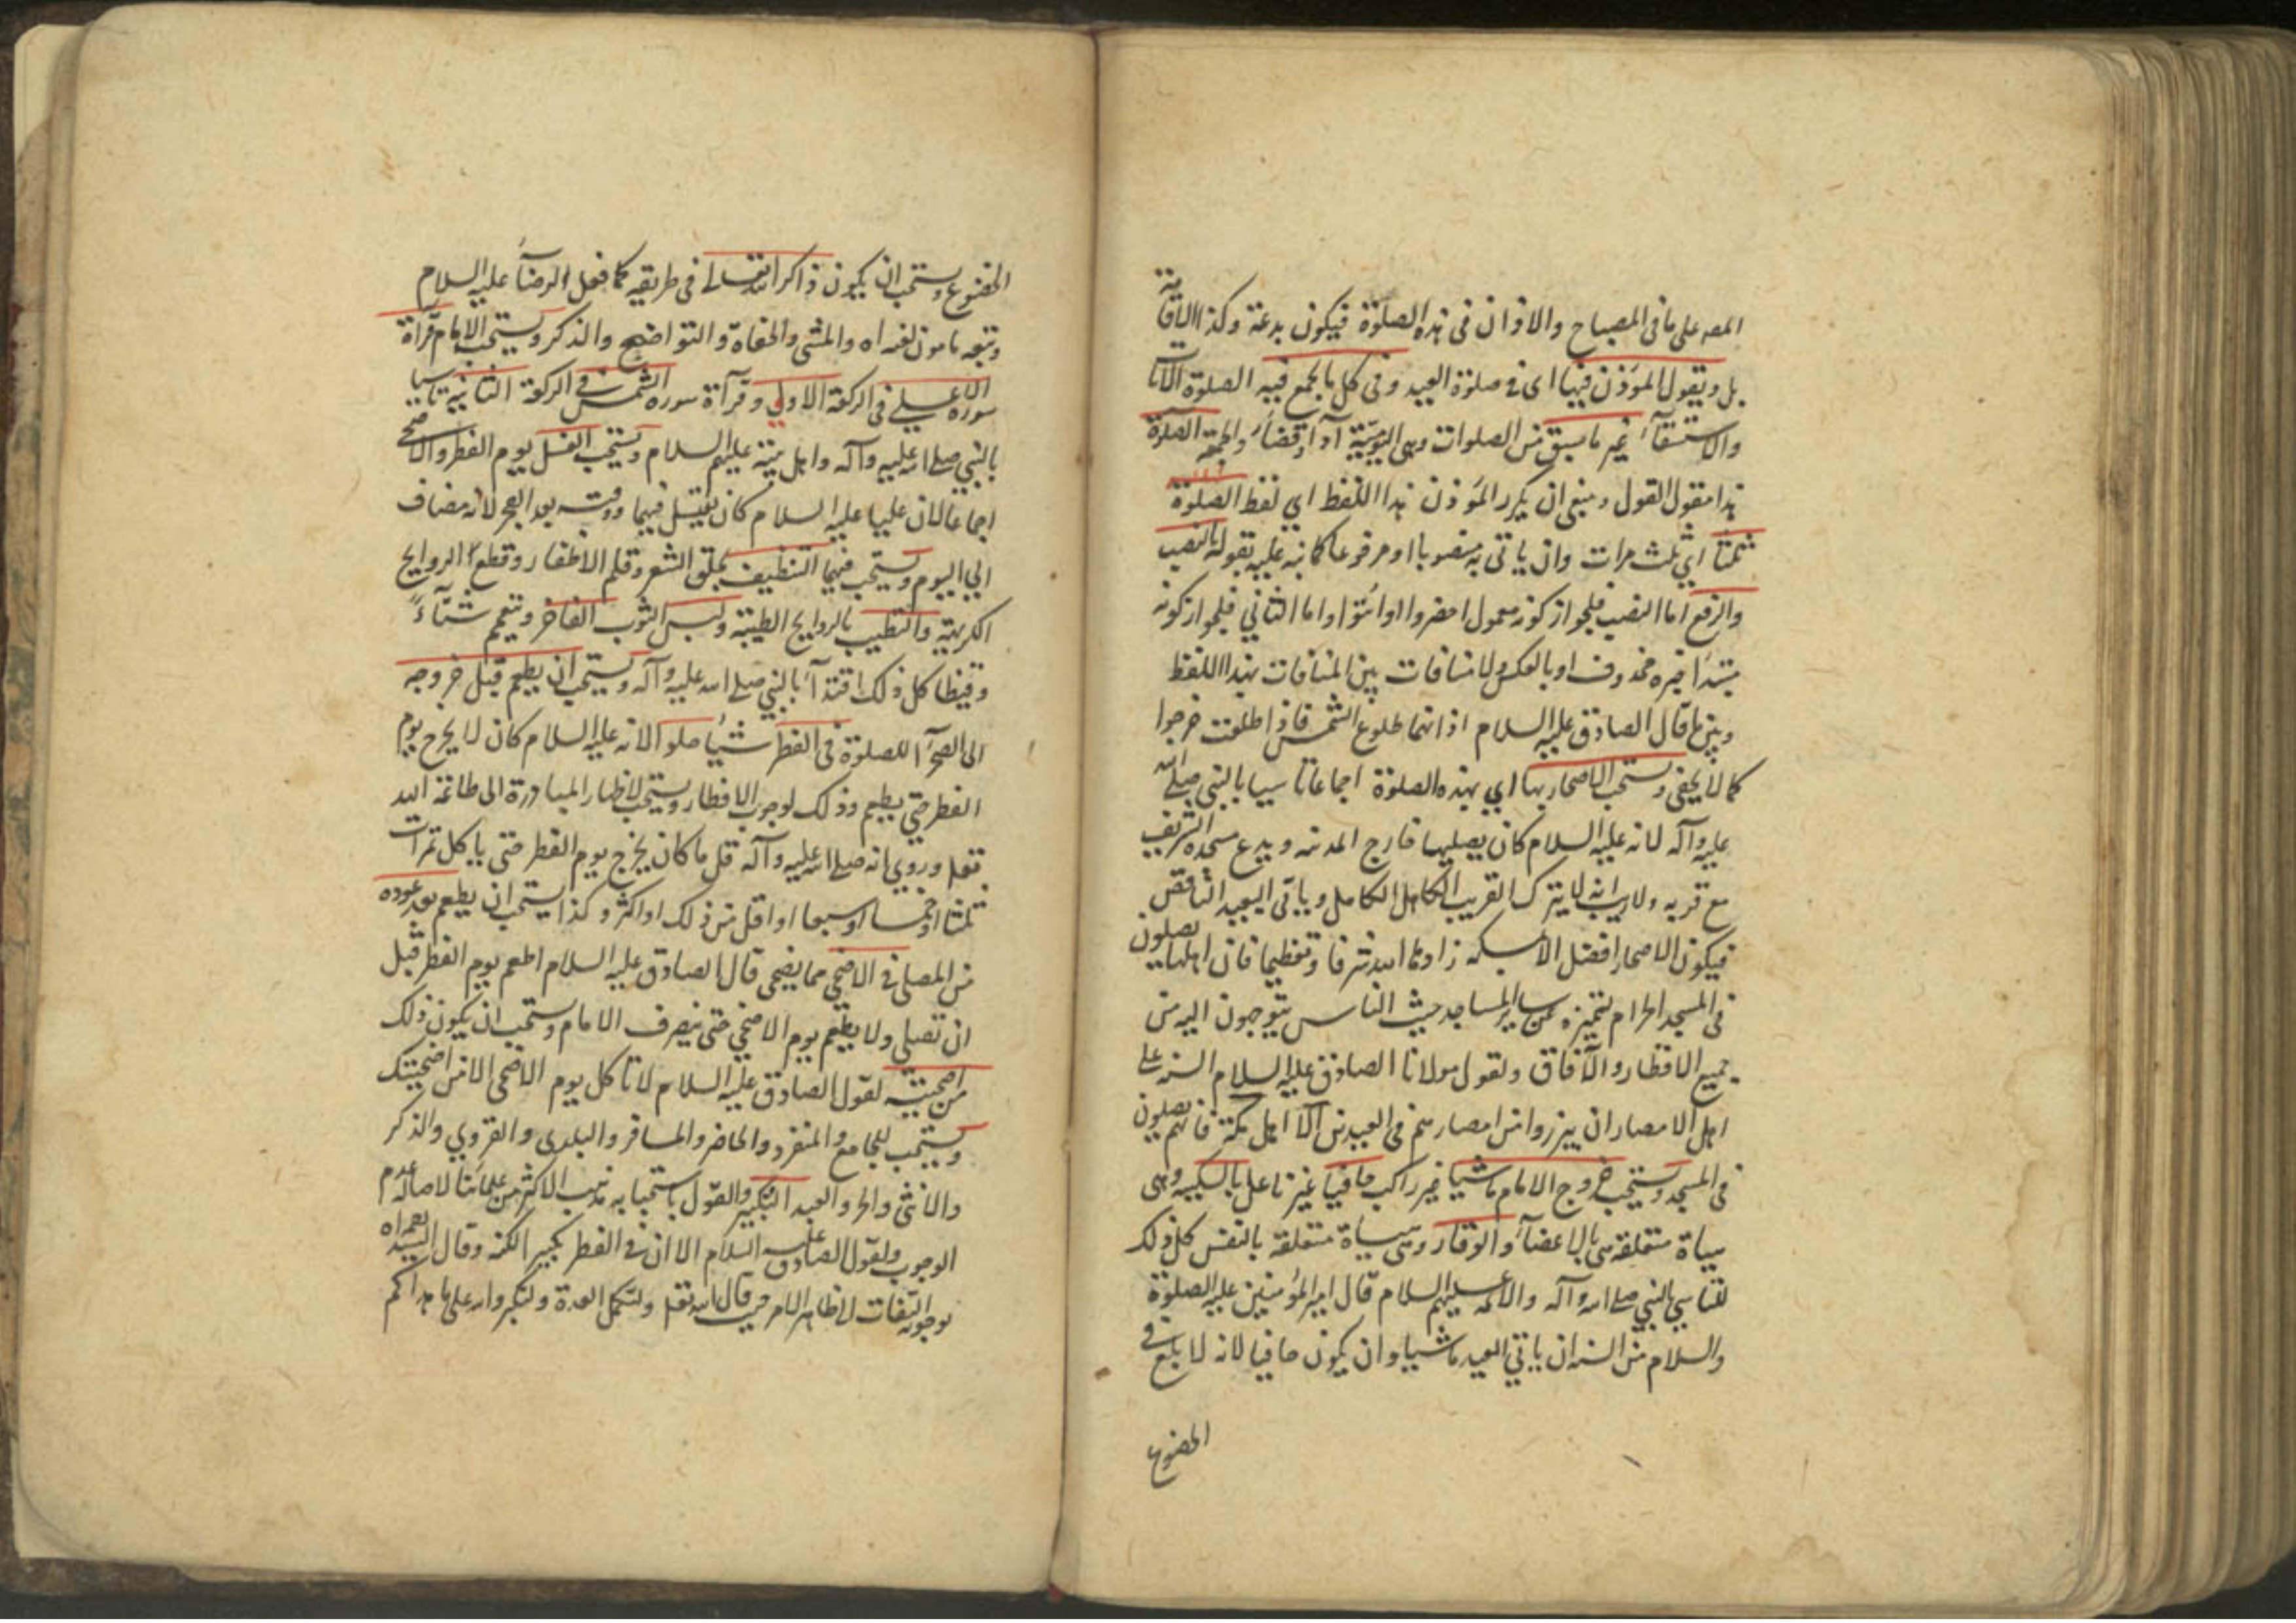 المصه على ما في المصباح والاذان في هذه الصلوة فيكون بدعة وكذا الاقامة
بل ويقول المؤذن فيها اى في صلوة العيد وفي كل ما يجمع فيه الصلوة الآيات
والاستسقآء غير ما سبق من الصلوات وهى اليومية آدآ وقضآء والجمعة الصلوة
هذا مقول القول وينبغى ان يكرر المؤذن هذا اللفظ اي لفظ الصلوة
ثلثا اي ثلث مرات وان ياتى به منصوبا او مرفوعا كما نبه عليه بقوله بالنصب
والرفع اما النصب فلجواز كونه معمول احضروا او ائتوا واما الثاني فلجواز كونه
مبتدا خبره محذوف او بالعكس ولا منافات بين المنافات بهذا اللفظ
وبين ما قال الصادق عليه السلام اذانهما طلوع الشمس فاذا طلعت خرجوا
كما لا يخفى ويستحب الاصحار بها اي بهذه الصلوة اجماعا تاسيا بالنبي صلى الله
عليه وآله لانه عليه السلام كان يصليها خارج المدينه ويدع مسجده الشريف
مع قربه ولا ريب انه لا يترك القريب الكامل الكامل وياتى البعيد الناقص
فيكون الاصحار افضل الا بمكه زادها الله شرفا وتعظيما فان اهلها يصلون
فى المسجد الحرام لتميزه عن ساير المساجد حيث الناس يتوجهون اليه من
جميع الاقطار والآفاق ولقول مولانا الصادق عليه السلام السنه على
اهل الامصار ان يبرزوا من امصارهم فى العيدين الا اهل مكة فانهم يصلون
فى المسجد ويستحب خروج الامام ماشيا غير راكب حافيا غير ناعل بالسكينه وهى
هيأة متعلقه هى بالاعضآء والوقار وهى هيأة متعلقة بالنفس كل ذلك
للتاسي بالنبي صلى الله وآله والائمه عليهم السلام قال امير المؤمنين عليه الصلوة
والسلام من السنه ان ياتي العيد ماشيا وان يكون حافيا لانه ابلغ في
الخضوع
الخضوع ويستحب ان يكون ذاكرا لله تعالى في طريقه كما فعل الرضا عليه السلام
والمشى والحفاة والتواضع والذكر ويستحب للامام قرآة
سورة الاعلى فى الركعة الاولى وقرآة سورة الشمس في الركعة الثانية تاسيا
بالنبي صلى الله عليه وآله واهل بيته عليهم السلام ويستحب الغسل يوم الفطر والاضحى
اجماعا لان عليا عليه السلام كان يغتسل فيهما ووقته بعد الفجر لانه مضاف
الى اليوم ويستحب فيهما التنظيف بحلق الشعر وقلم الاظفار وقطع الروايح
الكريهة والتطيب بالروايح الطيبة ولبس الثوب الفاخر ويتعمم شتآءً
وقيظا كل ذلك اقتدآء بالنبي صلى الله عليه وآله ويستحب ان يطعم قبل خروجه
الى الصحرآ للصلوة فى الفطر شيئا حلوا لانه عليه السلام كان لا يخرج يوم
الفطر حتى يطعم وذلك لوجوب الافطار ويستحب لاظهار المبادرة الى طاعة الله
تعه وروي انه صلى الله عليه وآله قل ما كان يخرج يوم الفطر حتى ياكل تمرات
ثلثا او خمسا او سبعا او اقل من ذلك او اكثر وكذا يستحب ان يطعم بعد عوده
من المصلى في الاضحى مما يضحى قال الصادق عليه السلام اطعم يوم الفطر قبل
ان تصلي ولا يطعم يوم الاضحى حتى ينصرف الامام ويستحب ان يكون ذلك
من اضحيته لقول الصادق عليه السلام لا تاكل يوم الاضحى الا من اضحيتك
ويستحب للجامع والمنفرد والحاضر والمسافر والبلدى والقروي والذكر
والانثى والحر والعبد التكبير والقول باستحبابه مذهب الاكثر من علمائنا لاصالة عدم
الوجوب ولقول الصادق عليه السلام الا ان في الفطر تكبيرا لكنه وقال السيد
بوجوبه التفات لظاهر الامر حيث قال الله تعه ولتكملوا العدة ولتكبروا الله على ما هداكم